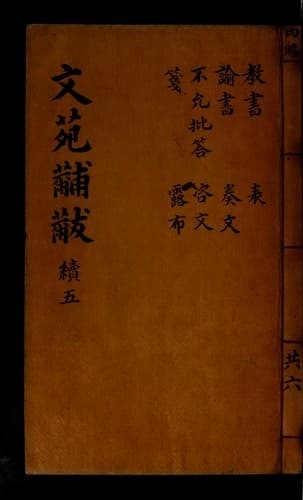 內賜
共六
教書 表
諭書 奏文
不允批答 咨文
箋 露布
文苑黼黻 續五